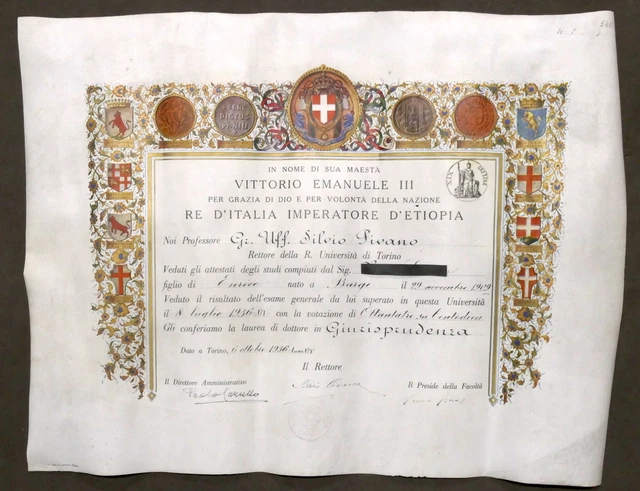 IN NOME DI SUA MAESTÀ
VITTORIO EMANUELE III
PER GRAZIA DI DIO E PER VOLONTÀ DELLA NAZIONE
RE D'ITALIA IMPERATORE D'ETIOPIA
Noi Professore Gr. Uff. Silvio Pivano
Rettore della R. Università di Torino
Veduti gli attestati degli studi compiuti dal Sig.
figlio di Enrico nato a Barge il 29 novembre
Veduto il risultato dell'esame generale da lui superato in questa Università
il 8 luglio 1936 con la votazione di Ottantatre su Centodieci
Gli conferiamo la laurea di dottore in Giurisprudenza
Dato a Torino, 6 ottobre 1936
Il Rettore
Il Direttore Amministrativo Il Preside della Facoltà